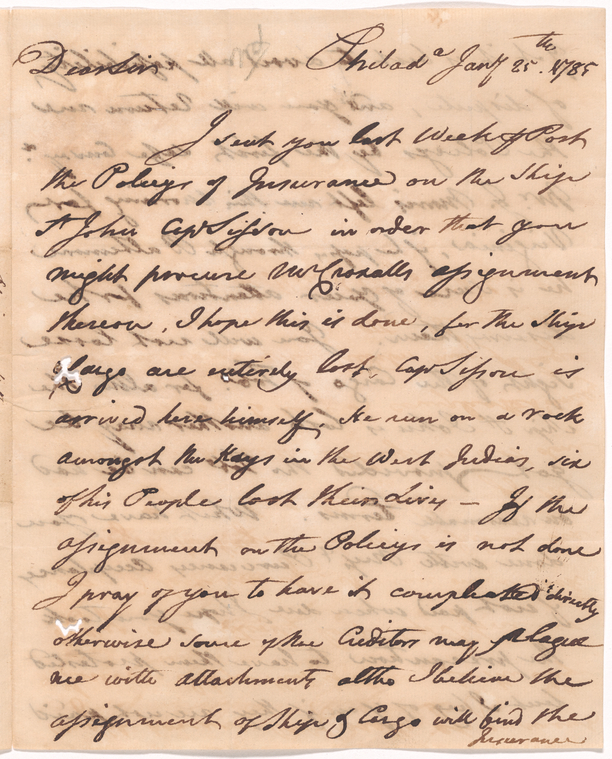 Dear Sir Philad.a Jany 25.th 1785
I sent you last Week p Post
the Policys of Insurance on the Ship
St John Capt Sisson in order that you
might procure Mr Croxalls assignment
thereon, I hope this is done, for the Ship
& Cargo are entirely lost, Capt Sisson is
arrived here himself, He run on a rock
amongst the Keys in the West Indies, six
of his People lost their Lives — If the
assignment on the Policys is not done
I pray of you to have it compleated directly
otherwise some of the Creditors may plague
me with attachments altho I believe the
assignment of Ship & Cargo will bind the
Insurance